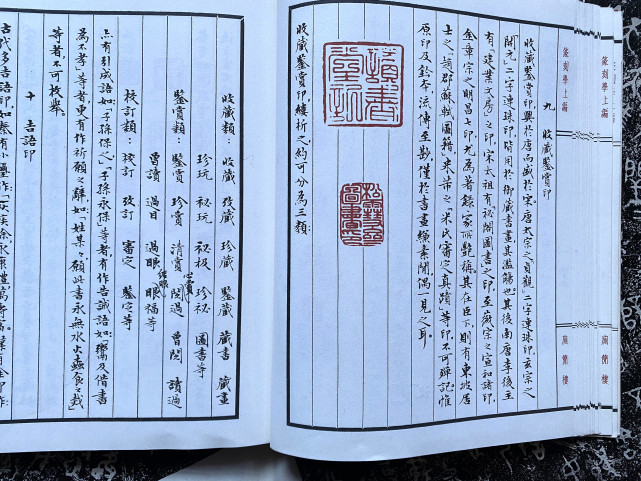 篆刻學上編
篆刻學上編
庼簡樓
九 收藏鑒賞印
收藏鑒賞印，興於唐而盛於宋。唐太宗之「貞觀」二字連珠印，玄宗之
「開元」二字連珠印，皆用於御藏書畫，其濫觴也。其後南唐李後主
有「建業文房」之印，宋太祖有「祕閣圖書」之印，至徽宗之宣和諸印，
金章宗之明昌七印，尤為著錄家所豔稱，其在臣下，則有東坡居
士之「趙郡蘇軾圖籍」，米芾之「米氏審定真蹟」等印，不可殫記，惟
原印及鈐本，流傳至尟，僅於書畫縑素間，偶一見之耳。
收藏鑒賞印，縷析之，約可分為三類：
收藏類： 收藏 攷藏 珍藏 鑒藏 藏書 藏畫
珍玩 祕玩 祕极 珍祕 圖書等
鑒賞類： 鑒賞 珍賞 清賞 心賞 閱過 曾閱 讀過
曾讀 過目 過眼 經眼 眼福等
校訂類： 校訂 攷訂 審定 鑒定等
亦有引成語如：「子孫保之」「子孫永保」等者，有作告誡語如：鬻及借書
為不孝等者，更有作祈願之辭，如「姓某願此書永無水火蟲食之烖
等者，不可枚舉。
十 吉語印